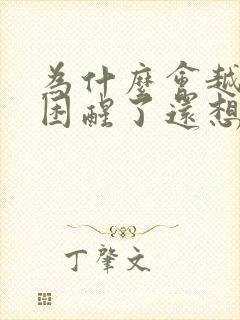 為什麼會越
困醒了還想
丁肇文